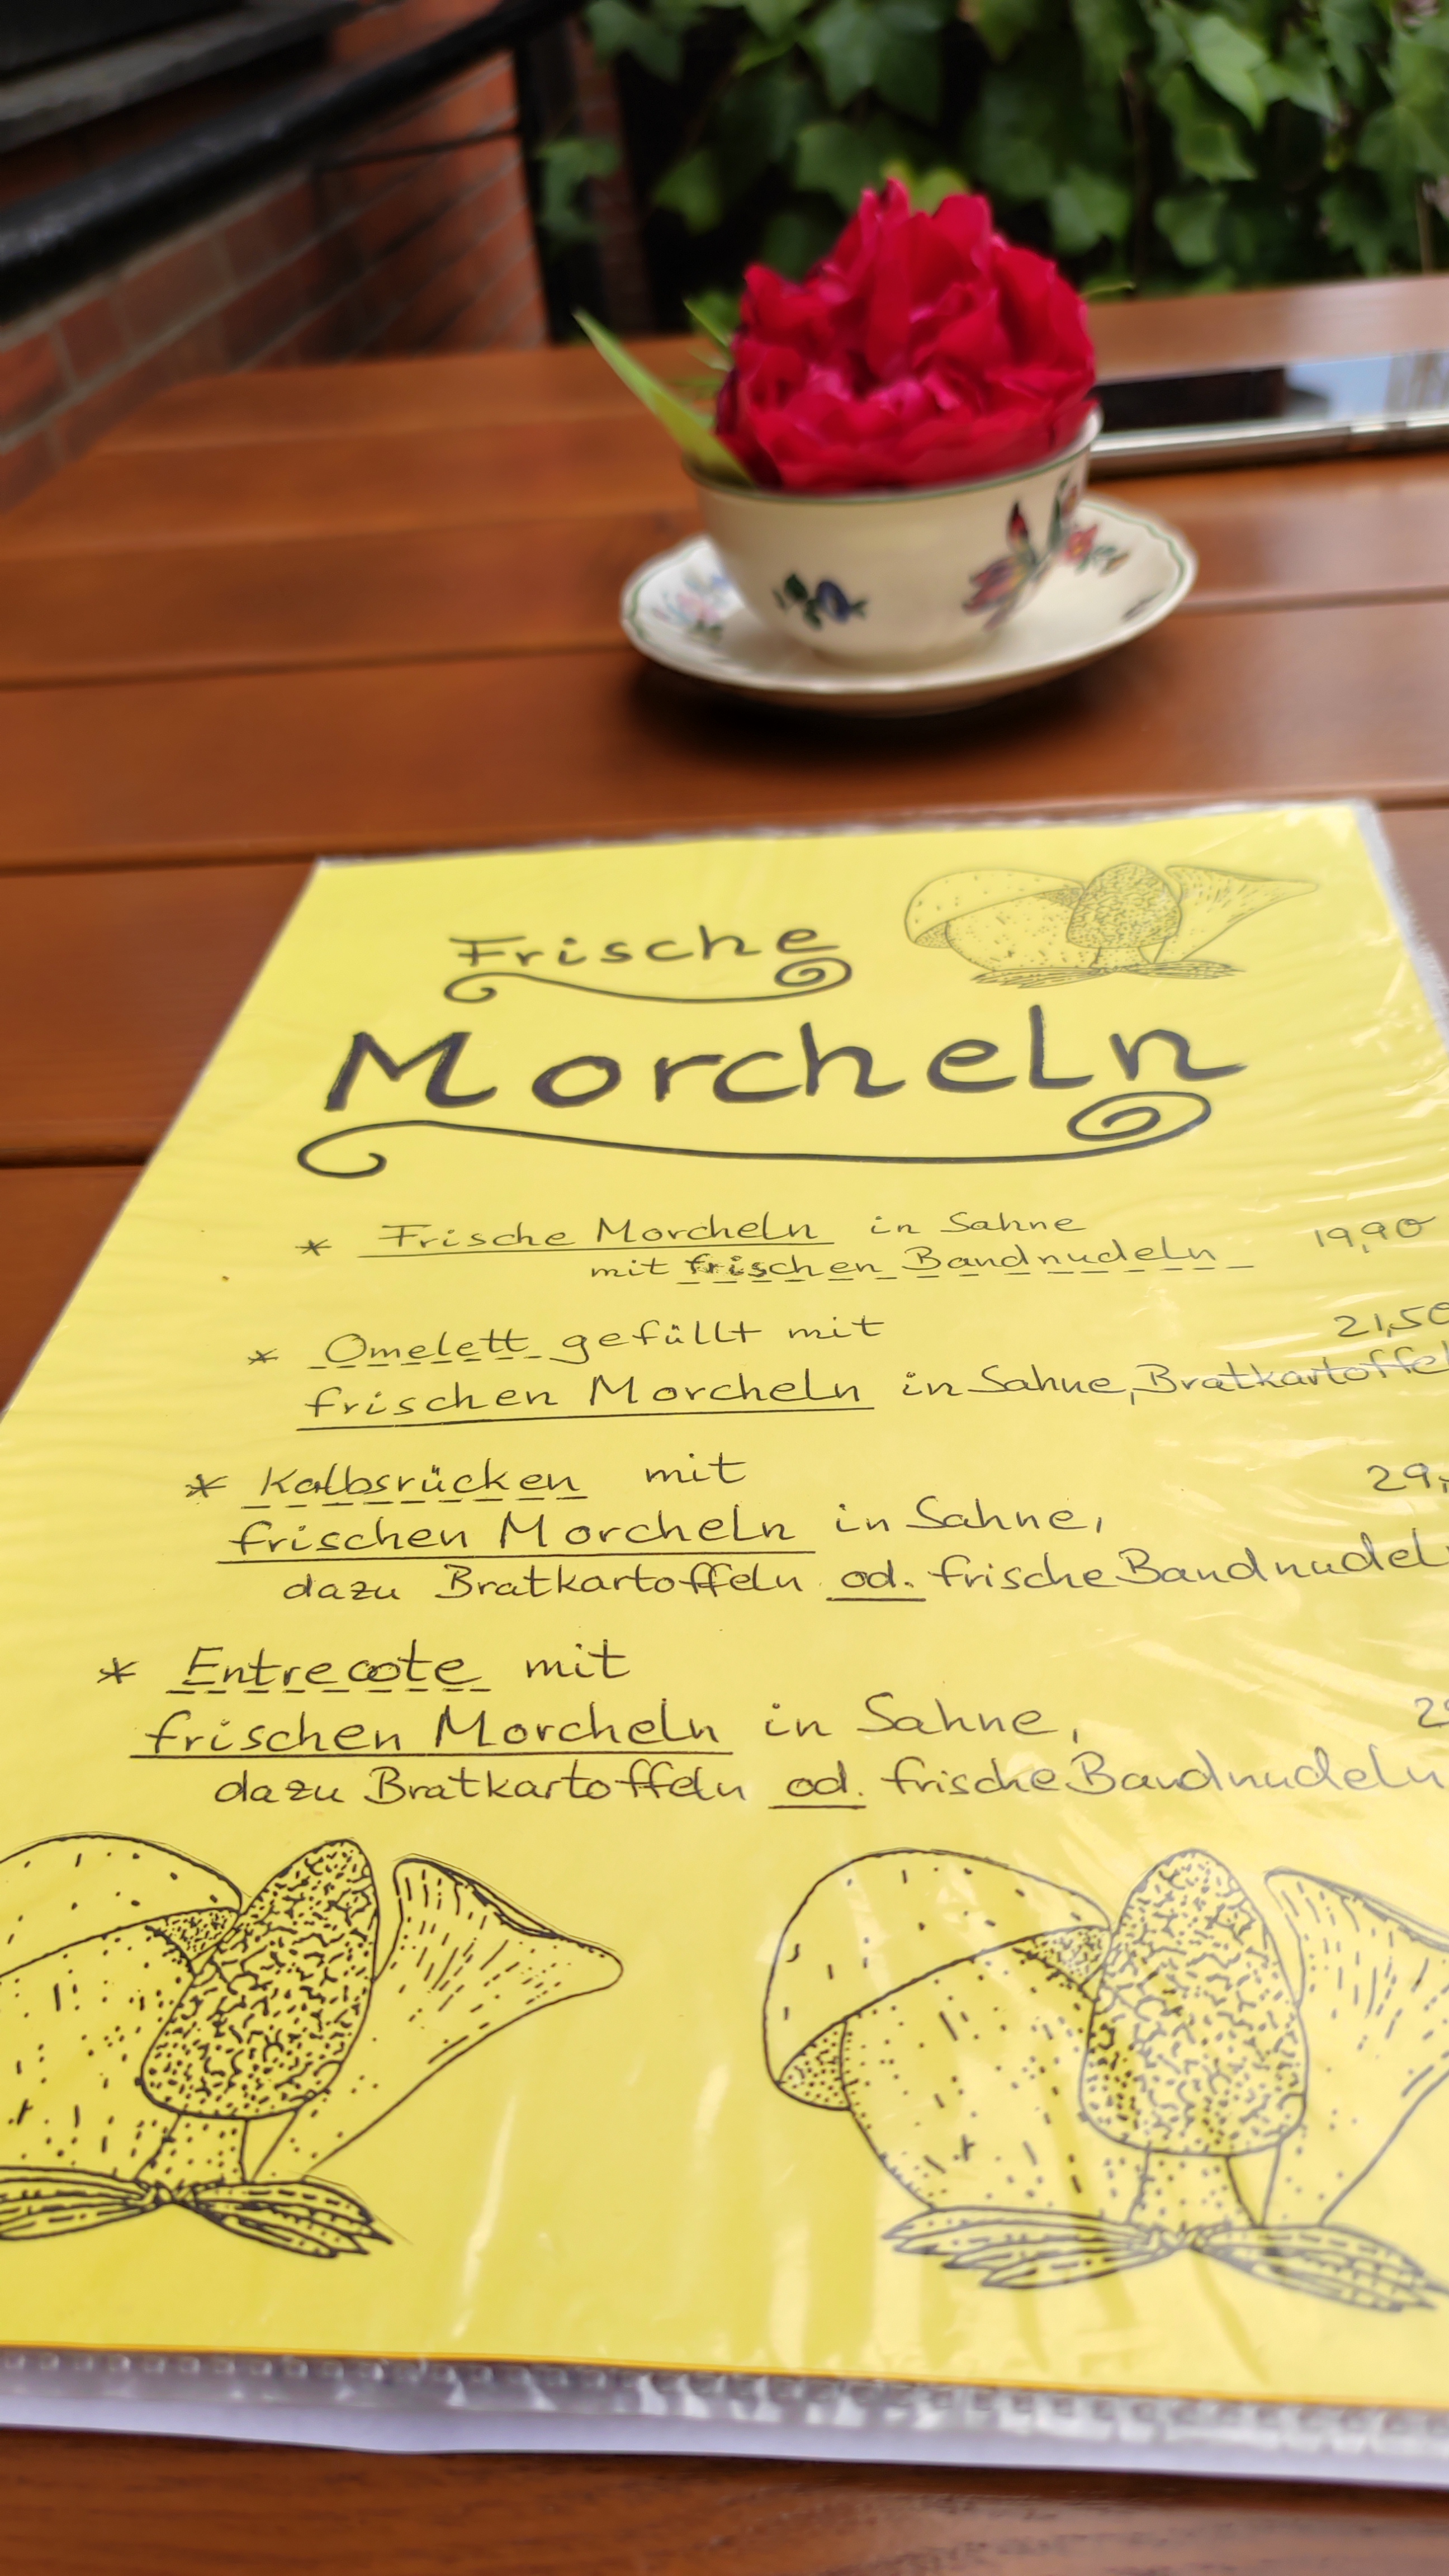 Frische
Morcheln
* Frische Morcheln in Sahne
mit frischen Bandnudeln 19,90
* Omelett gefüllt mit 21,50
frischen Morcheln in Sahne, Bratkartoffel
* Kalbsrücken mit 29,
frischen Morcheln in Sahne,
dazu Bratkartoffeln od. frische Bandnudel
* Entrecote mit
frischen Morcheln in Sahne,
dazu Bratkartoffeln od. frische Bandnudeln